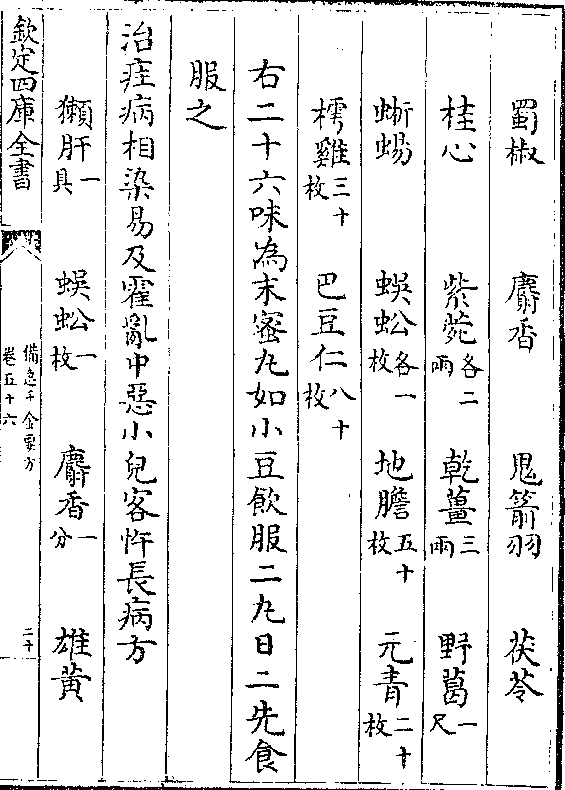 蜀椒 麝香 鬼箭羽 茯苓
桂心 紫菀各二兩 乾薑三兩 野葛一尺
蜥蜴 蜈蚣各一枚 地膽五十枚 元青二十枚
樗雞三十枚 巴豆仁八十枚
右二十六味為末蜜丸如小豆飲服二丸日二先食
服之
治疰病相染易及霍亂中惡小兒客忤長病方
獺肝一具 蜈蚣一枚 麝香一分 雄黃
欽定四庫全書
備急千金要方
卷五十六
二十